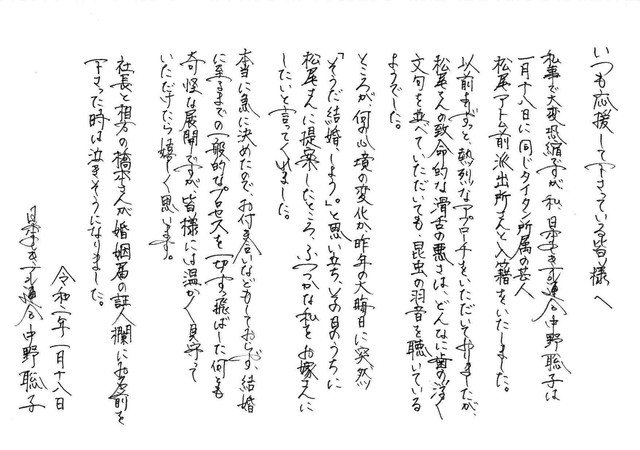 いつも応援して下さっている皆様へ
私事で大変恐縮ですが、私、日本エレキテル連合中野聡子は
一月十八日に同じタイタン所属の芸人
松尾アトム前派出所さんと入籍をいたしました。
以前よりずっと、熱烈なアプローチをいただいておりましたが、
松尾さんの致命的な滑舌の悪さは、どんなに歯の浮く
文句を並べていただいても、昆虫の羽音を聴いている
ようでした。
ところが、何の心境の変化か、昨年の大晦日に突然
「そうだ結婚しよう」。と思い立ち、その日のうちに
松尾さんに提案したところ、ふつつかな私をお嫁さんに
したいと言ってくれました。
本当に急に決めたので、お付き合いなどもしておらず、結婚
に至るまでの一般的なプロセスを一切すっ飛ばした何とも
奇怪な展開ですが、皆様には温かく見守って
いただけたら嬉しく思います。
社長と相方の橋本さんが婚姻届の証人欄にお名前を
下さった時は泣きそうになりました。
令和二年一月十八日
日本エレキテル連合 中野聡子